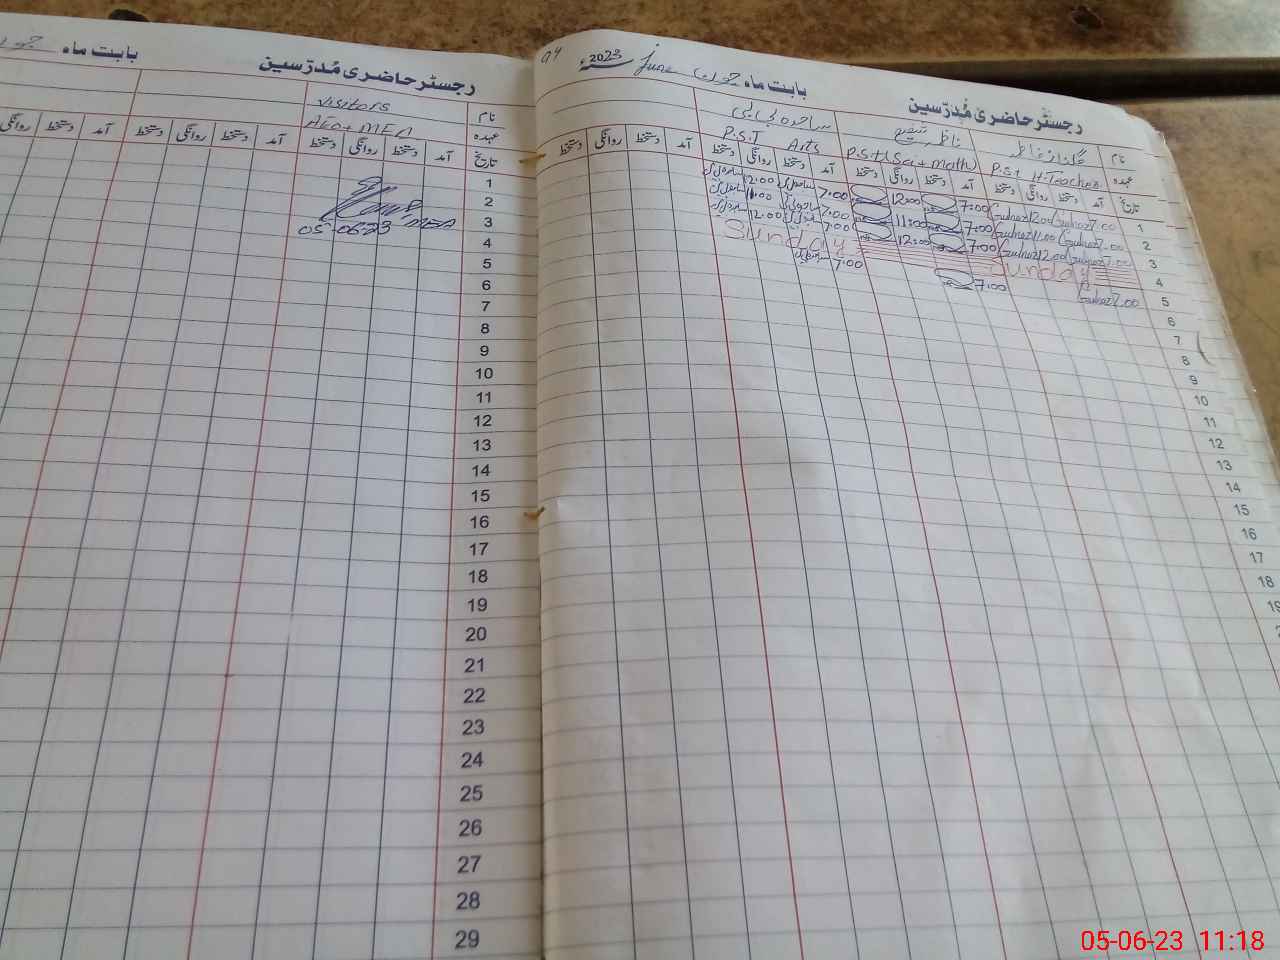 رجسٹر حاضری مُدرّسین بابت ماہ جون June 2023ء
نام گلناز فاطمہ
عہدہ P.S.T H.Teacher P.S.T(Sci+Math) P.S.T Arts
تاریخ آمد دستخط روانگی دستخط آمد دستخط روانگی دستخط آمد دستخط روانگی دستخط آمد دستخط روانگی دستخط
1 7.00 Gulnaz 12.00 Gulnaz 7:00 12:00 7:00 12:00
2 7.00 Gulnaz 11.00 Gulnaz 7:00 11:00 7:00 11:00
3 7.00 Gulnaz 12.00 Gulnaz 7:00 12:00 7:00 12:00
4 Sunday Sunday
5 7.00 Gulnaz 7:00 7:00
6
7
8
9
10
11
12
13
14
15
16
17
18
19
رجسٹر حاضری مُدرّسین بابت ماہ
نام Visitors
عہدہ AEO + MEA
تاریخ آمد دستخط روانگی دستخط آمد دستخط روانگی دستخط آمد دستخط روانگی
1
2
3 MEA 05-06-23
4
5
6
7
8
9
10
11
12
13
14
15
16
17
18
19
20
21
22
23
24
25
26
27
28
29
05-06-23 11:18